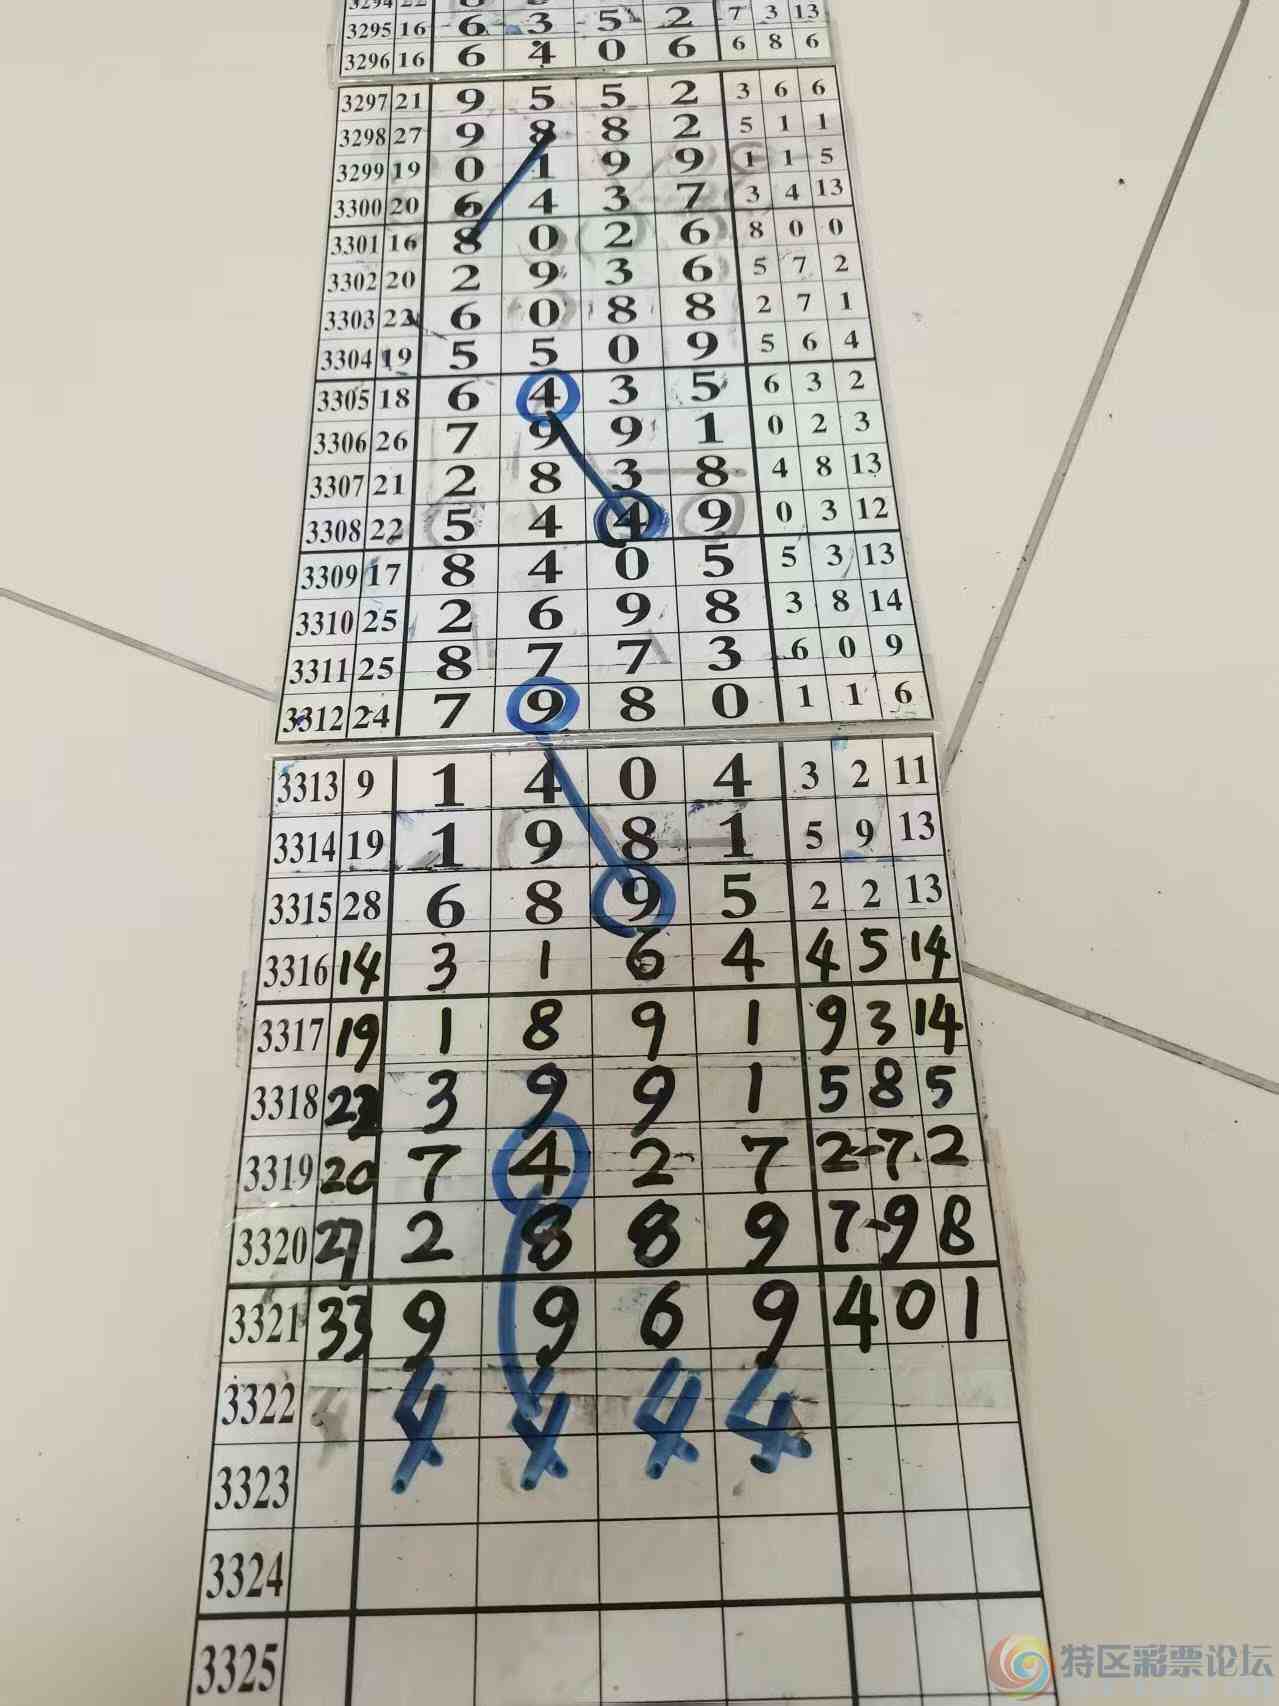 3295 16 6 3 5 2 7 3 13
3296 16 6 4 0 6 6 8 6
3297 21 9 5 5 2 3 6 6
3298 27 9 8 8 2 5 1 1
3299 19 0 1 9 9 1 1 5
3300 20 6 4 3 7 3 4 13
3301 16 8 0 2 6 8 0 0
3302 20 2 9 3 6 5 7 2
3303 22 6 0 8 8 2 7 1
3304 19 5 5 0 9 5 6 4
3305 18 6 4 3 5 6 3 2
3306 26 7 9 9 1 0 2 3
3307 21 2 8 3 8 4 8 13
3308 22 5 4 4 9 0 3 12
3309 17 8 4 0 5 5 3 13
3310 25 2 6 9 8 3 8 14
3311 25 8 7 7 3 6 0 9
3312 24 7 9 8 0 1 1 6
3313 9 1 4 0 4 3 2 11
3314 19 1 9 8 1 5 9 13
3315 28 6 8 9 5 2 2 13
3316 14 3 1 6 4 4 5 14
3317 19 1 8 9 1 9 3 14
3318 22 3 9 9 1 5 8 5
3319 20 7 4 2 7 2 7 2
3320 27 2 8 8 9 7 9 8
3321 33 9 9 6 9 4 0 1
3322 4 4 4 4
3323
3324
3325
特区彩票论坛